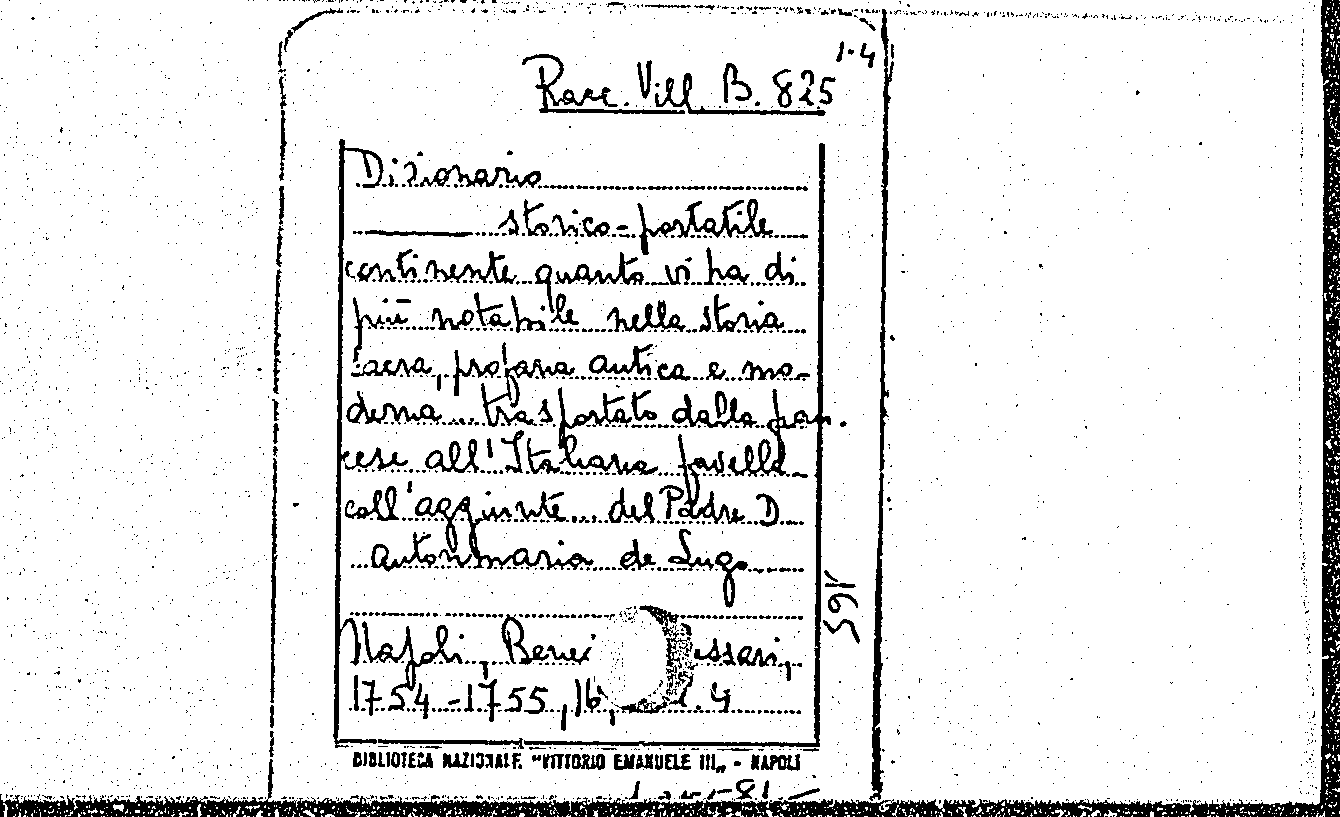 1-4
Racc. Vill. B. 825
Dizionario
storico-portatile
continente quanto vi ha di
più notabile nella storia
sacra, profana antica e mo-
derna... trasportato dalla fran.
cese all'Italiana favella
coll'aggiunte... del Padre D
Antonmaria de Lugo
Napoli, Bene
ssari,
1754-1755, 16, . 4
165
BIBLIOTECA NAZIONALE "VITTORIO EMANUELE III„ - NAPOLI